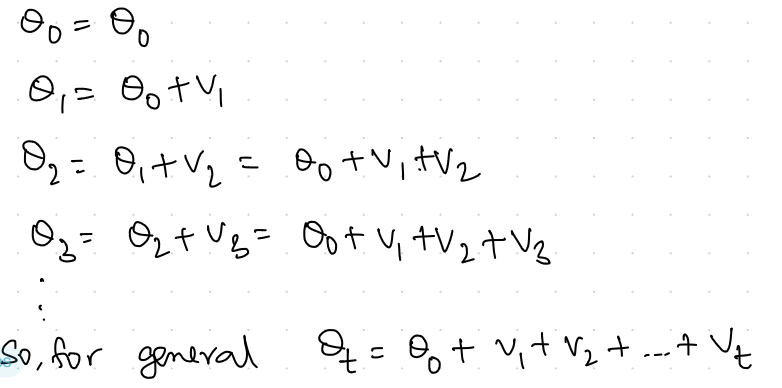 θ₀ = θ₀
θ₁ = θ₀ + v₁
θ₂ = θ₁ + v₂ = θ₀ + v₁ + v₂
θ₃ = θ₂ + v₃ = θ₀ + v₁ + v₂ + v₃
⋮
So, for general θₜ = θ₀ + v₁ + v₂ + ... + vₜ